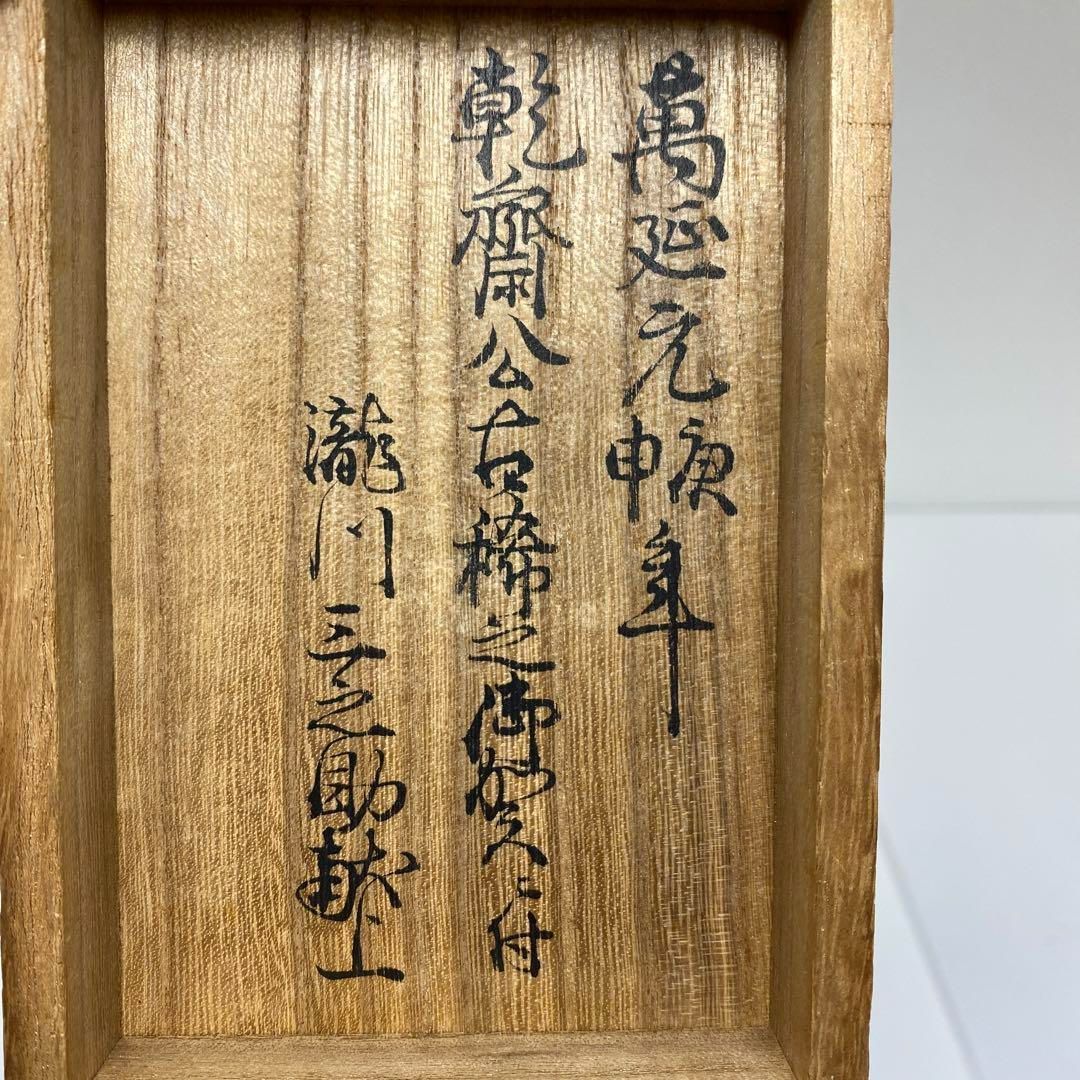 萬延元庚申年
乾齋公古稀之御賀ニ付
瀧川三之助献上